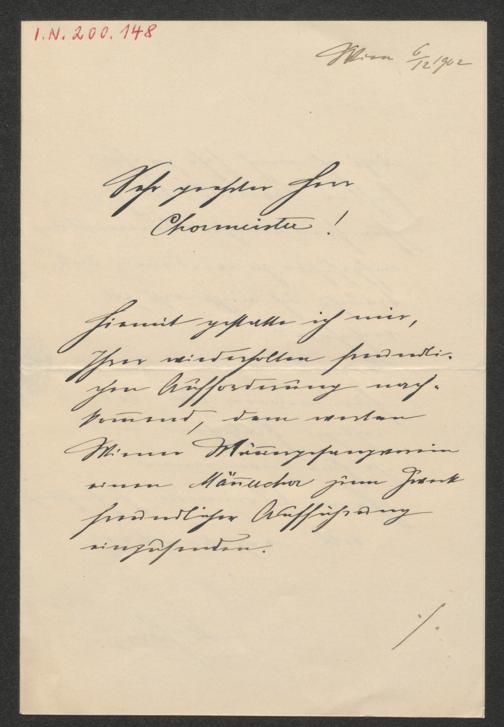 I.N. 200.148
Wien 6/12 1902
Sehr geehrter Herr
Chormeister!
Hiemit gestatte ich mir,
Ihrer wiederholten freundli-
chen Aufforderung nach-
kommend, dem werten
Wiener Männergesangverein
einen Männerchor zum Zweck
freundlicher Aufführung
einzusenden.
./.